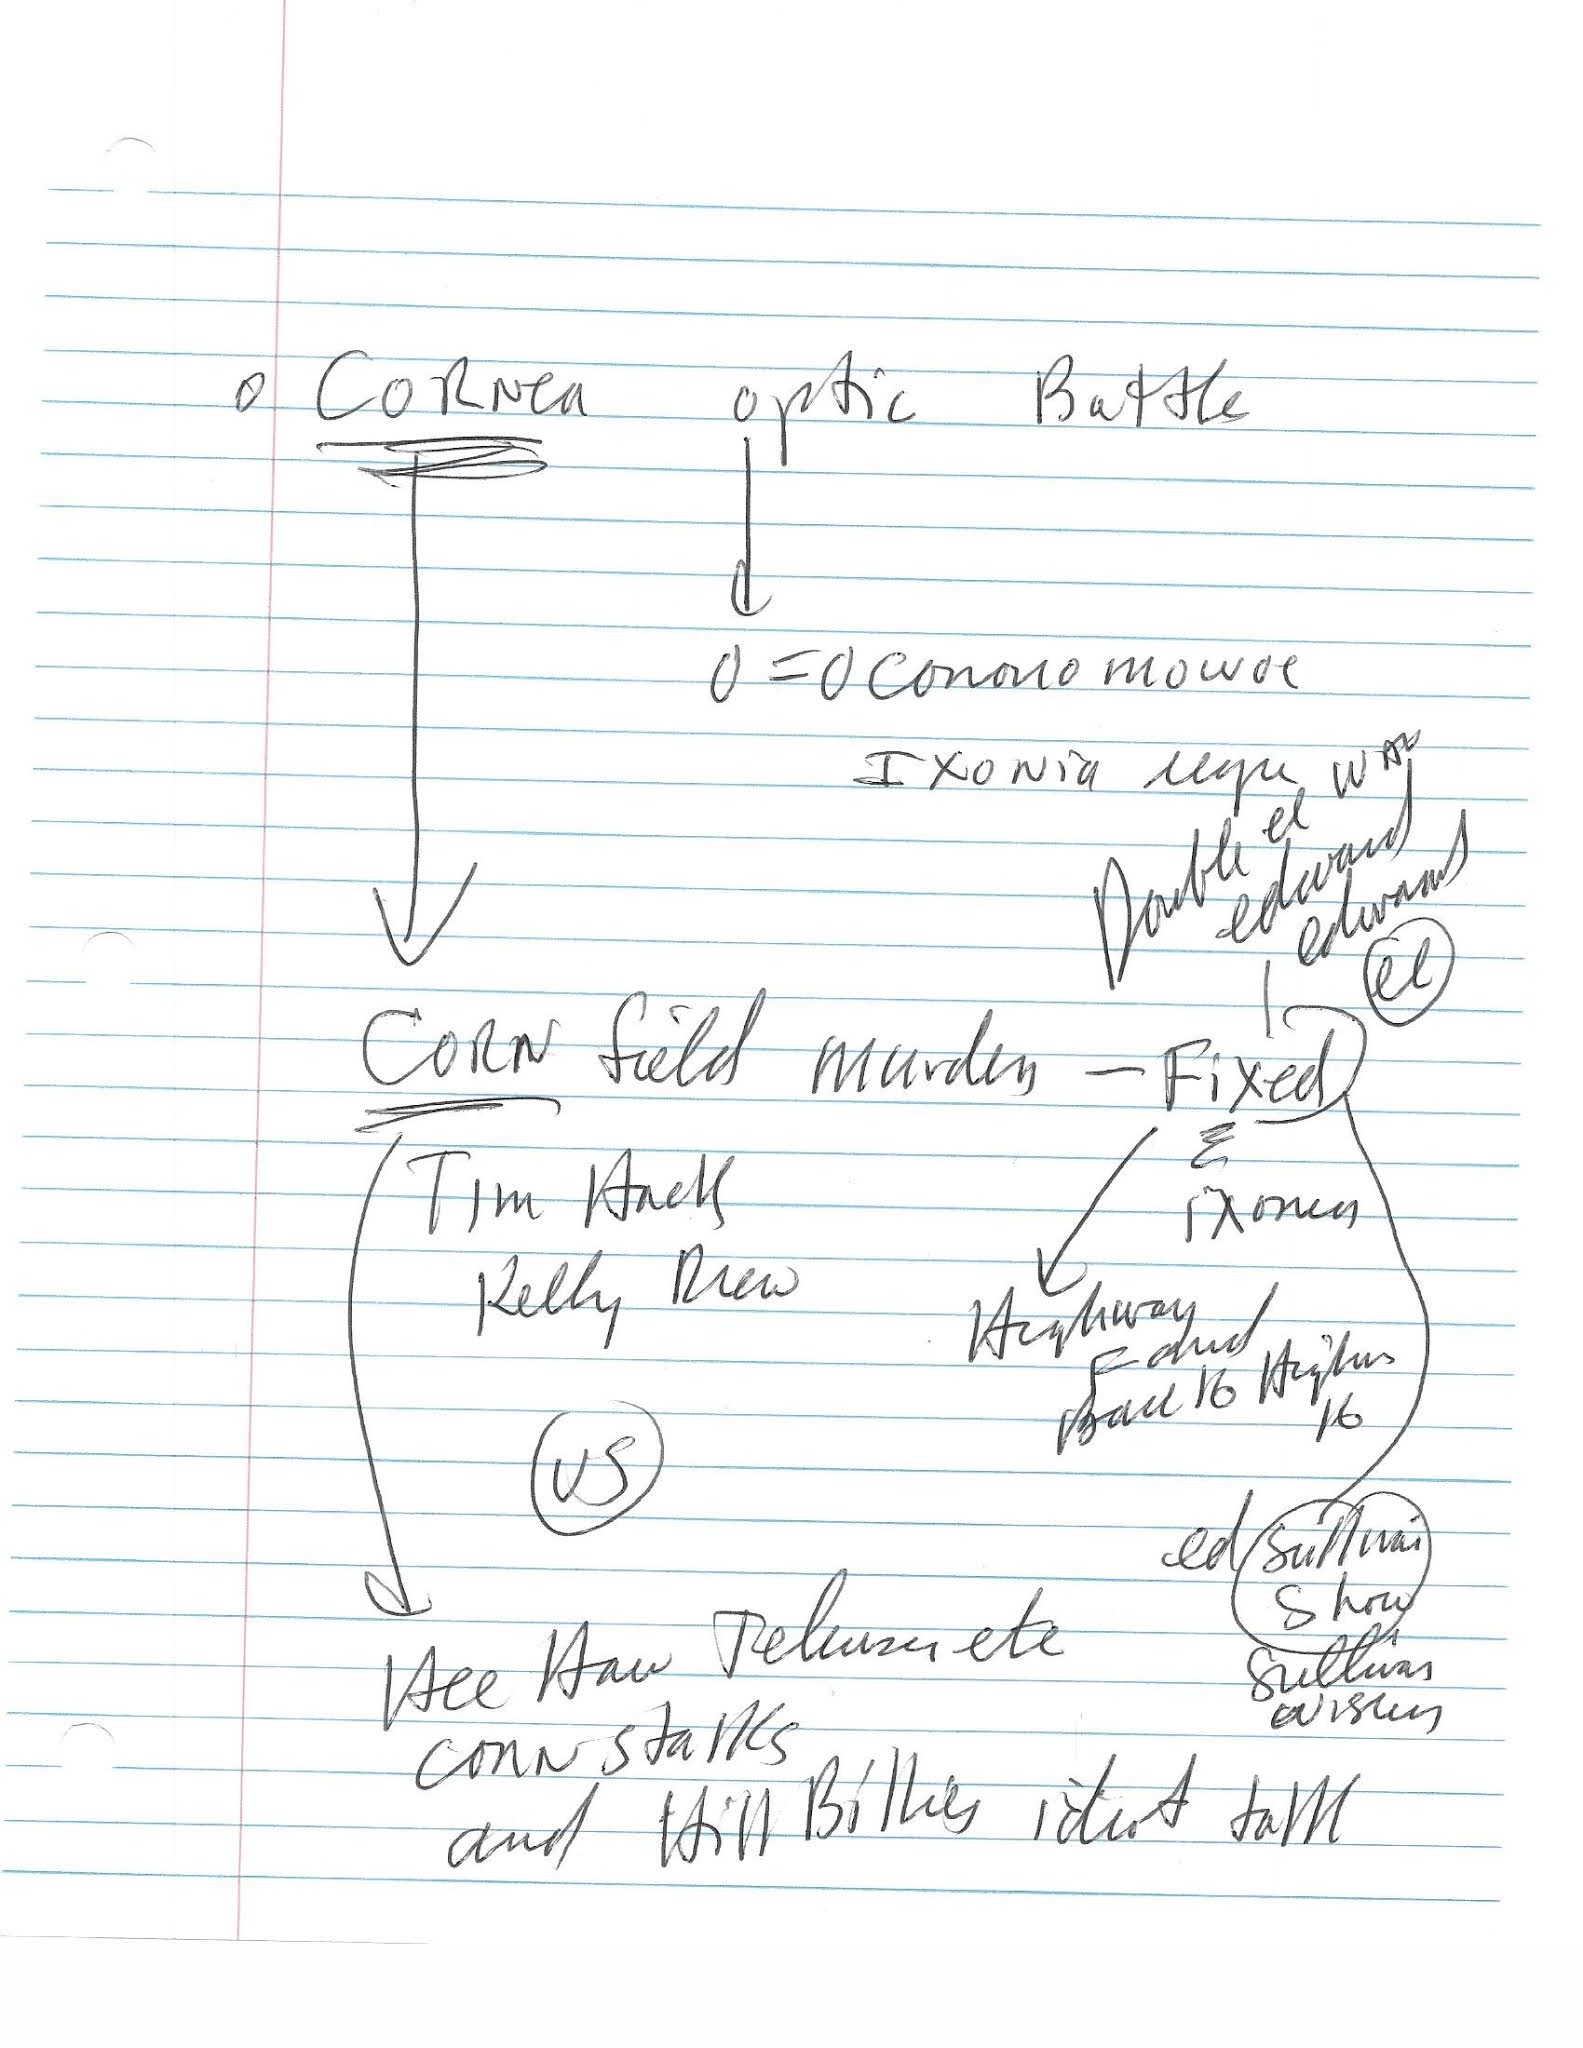 o CORNea optic Battle
O = Oconomowoc
IXONia
Double el
edward
edwards
el
CORN field murders - Fixed
Tim Hack
Kelly Drew
Highway
F and
16 Highw
16
VS
ed Sullivan
Show
Sullivan
Hee Haw
CORN stalks
and Hill Billies idiot talk